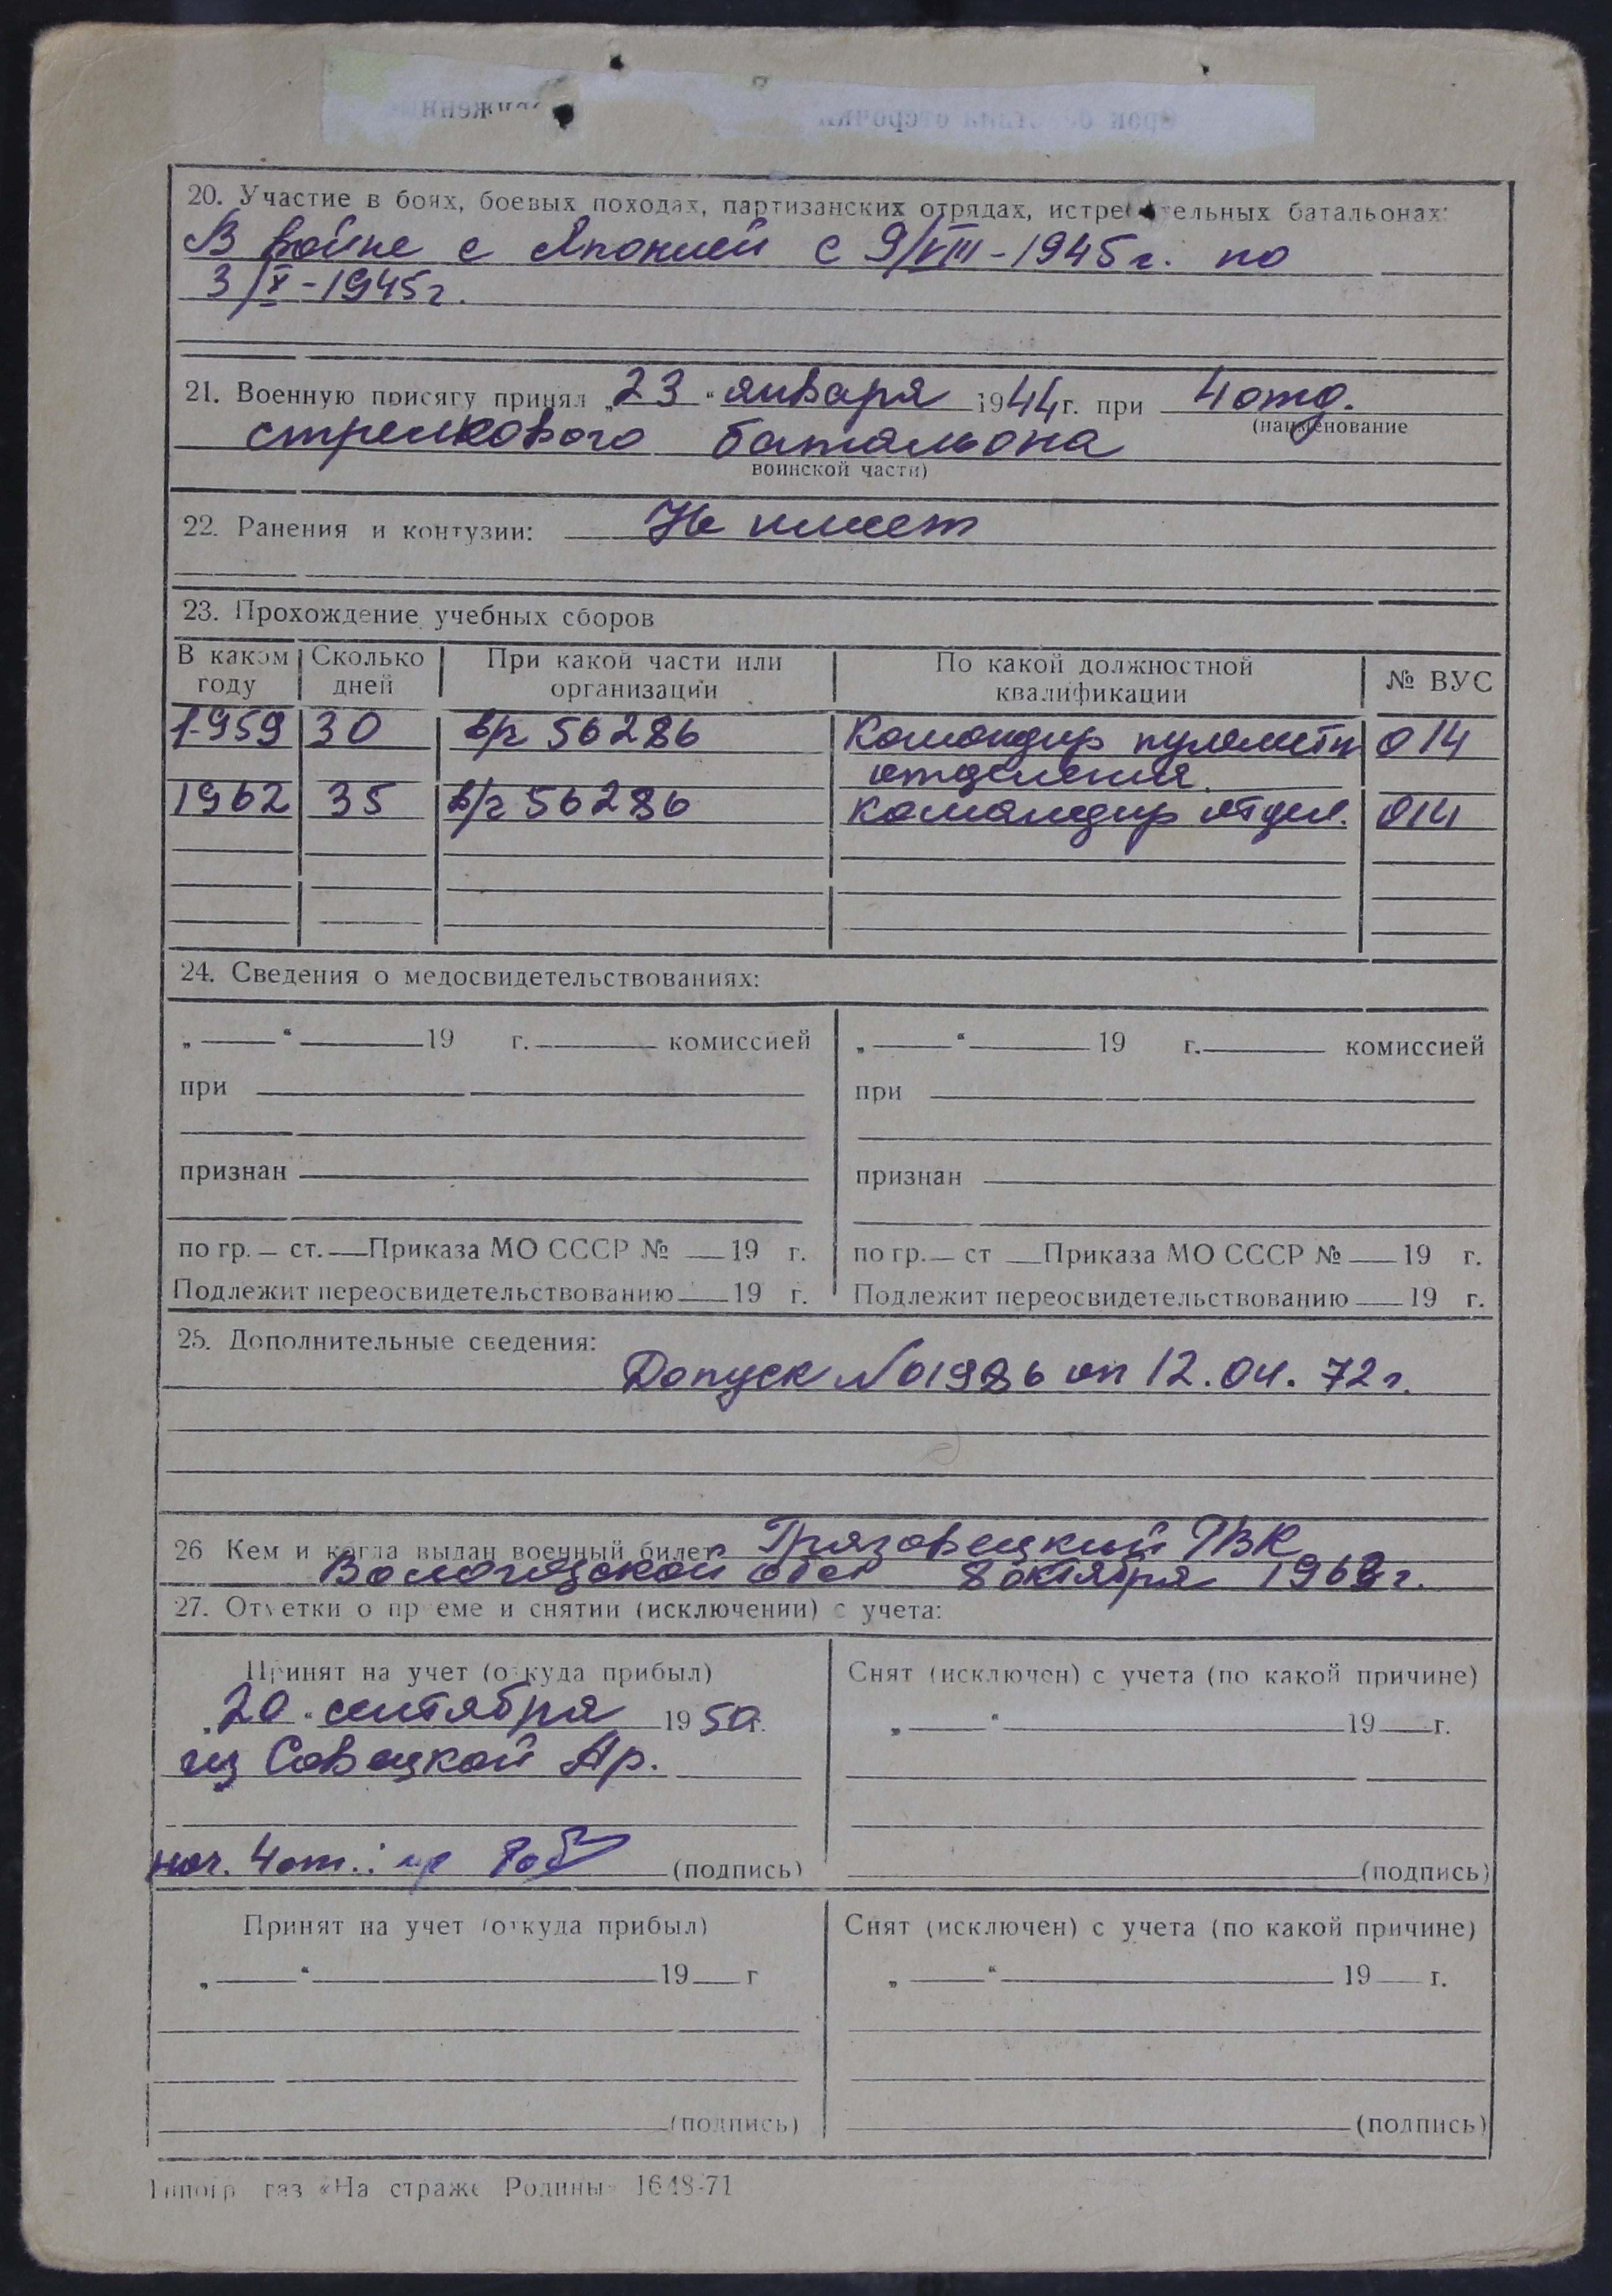 20. Участие в боях, боевых походах, партизанских отрядах, истребительных батальонах:
В войне с Японией с 9/VIII-1945г. по
3/IX-1945г.
21. Военную присягу принял „23“ января 1944г. при 4 отд.
(наименование
стрелкового батальона
воинской части)
22. Ранения и контузии: Не имеет
23. Прохождение учебных сборов
В каком году Сколько дней При какой части или организации По какой должностной квалификации № ВУС
1959 30 в/ч 56286 Командир пулеметн 014
отделения.
1962 35 в/ч 56286 командир отдел. 014
24. Сведения о медосвидетельствованиях:
„ “ 19 г. комиссией „ “ 19 г. комиссией
при при
признан признан
по гр. ст. Приказа МО СССР № 19 г. по гр. ст Приказа МО СССР № 19 г.
Подлежит переосвидетельствованию 19 г. Подлежит переосвидетельствованию 19 г.
25. Дополнительные сведения:
Допуск №01986 от 12.04.72г.
26 Кем и когда выдан военный билет Грязовецкий РВК
Вологодской обл 8 октября 1963г.
27. Отметки о приеме и снятии (исключении) с учета:
Принят на учет (откуда прибыл) Снят (исключен) с учета (по какой причине)
„20“ сентября 1950г. „ “ 19 г.
из Совецкой Ар.
нач. 4 от.: (подпись) (подпись)
Принят на учет (откуда прибыл) Снят (исключен) с учета (по какой причине)
„ “ 19 г „ “ 19 г.
(подпись) (подпись)
Типогр газ «На страже Родины» 1648-71